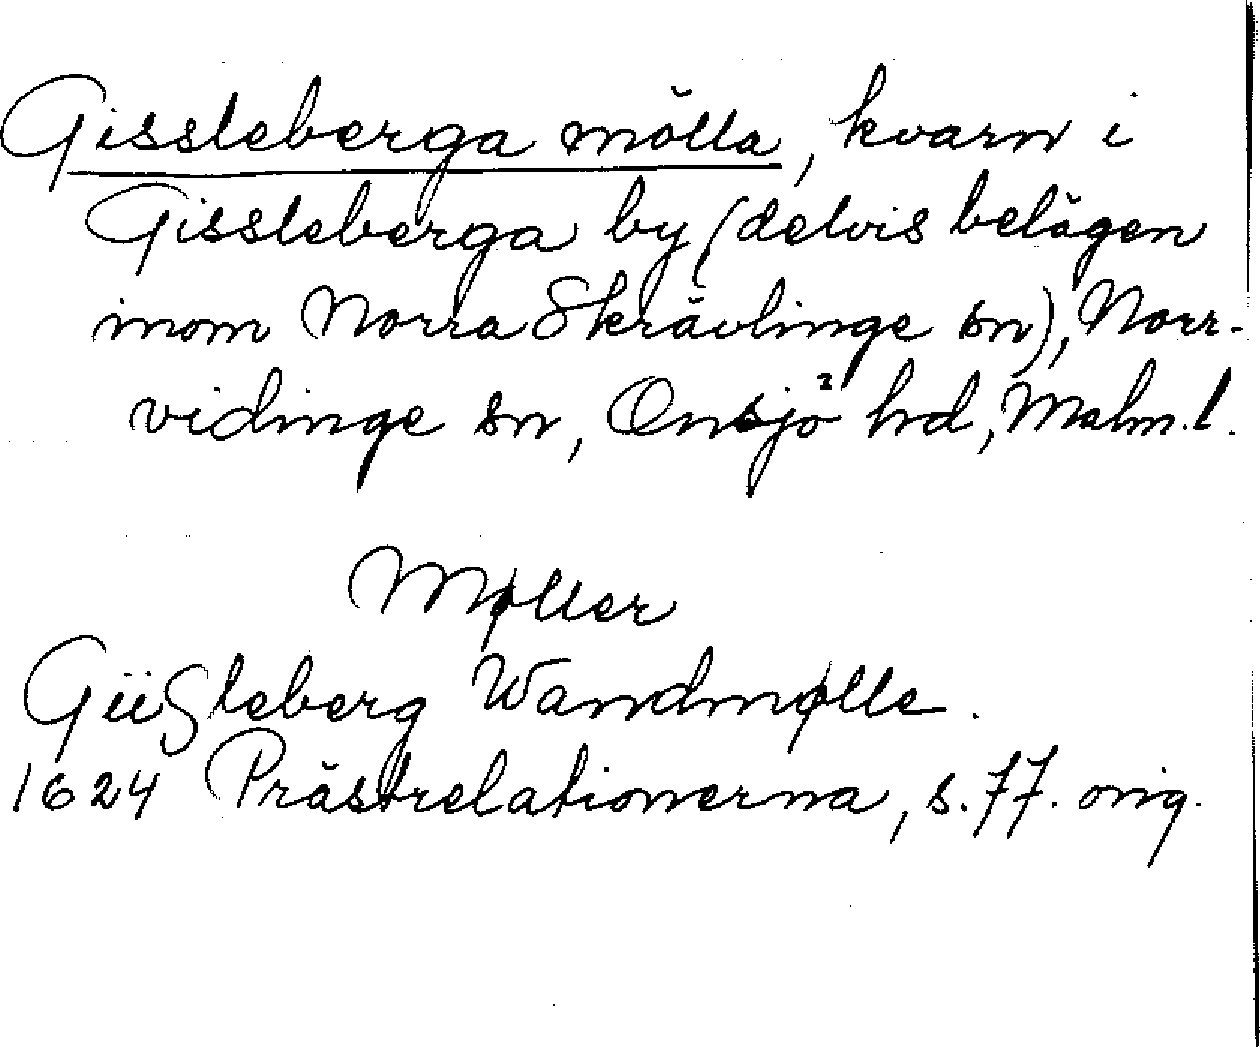 Gissleberga mölla, kvarn i
Gissleberga by (delvis belägen
inom Norra Skrävlinge sn), Norr-
vidinge sn, Onsjö hd, Malm. l.
Møller
Giißleberg Wandmølle.
1624 Prästrelationerna, s. 77. orig.